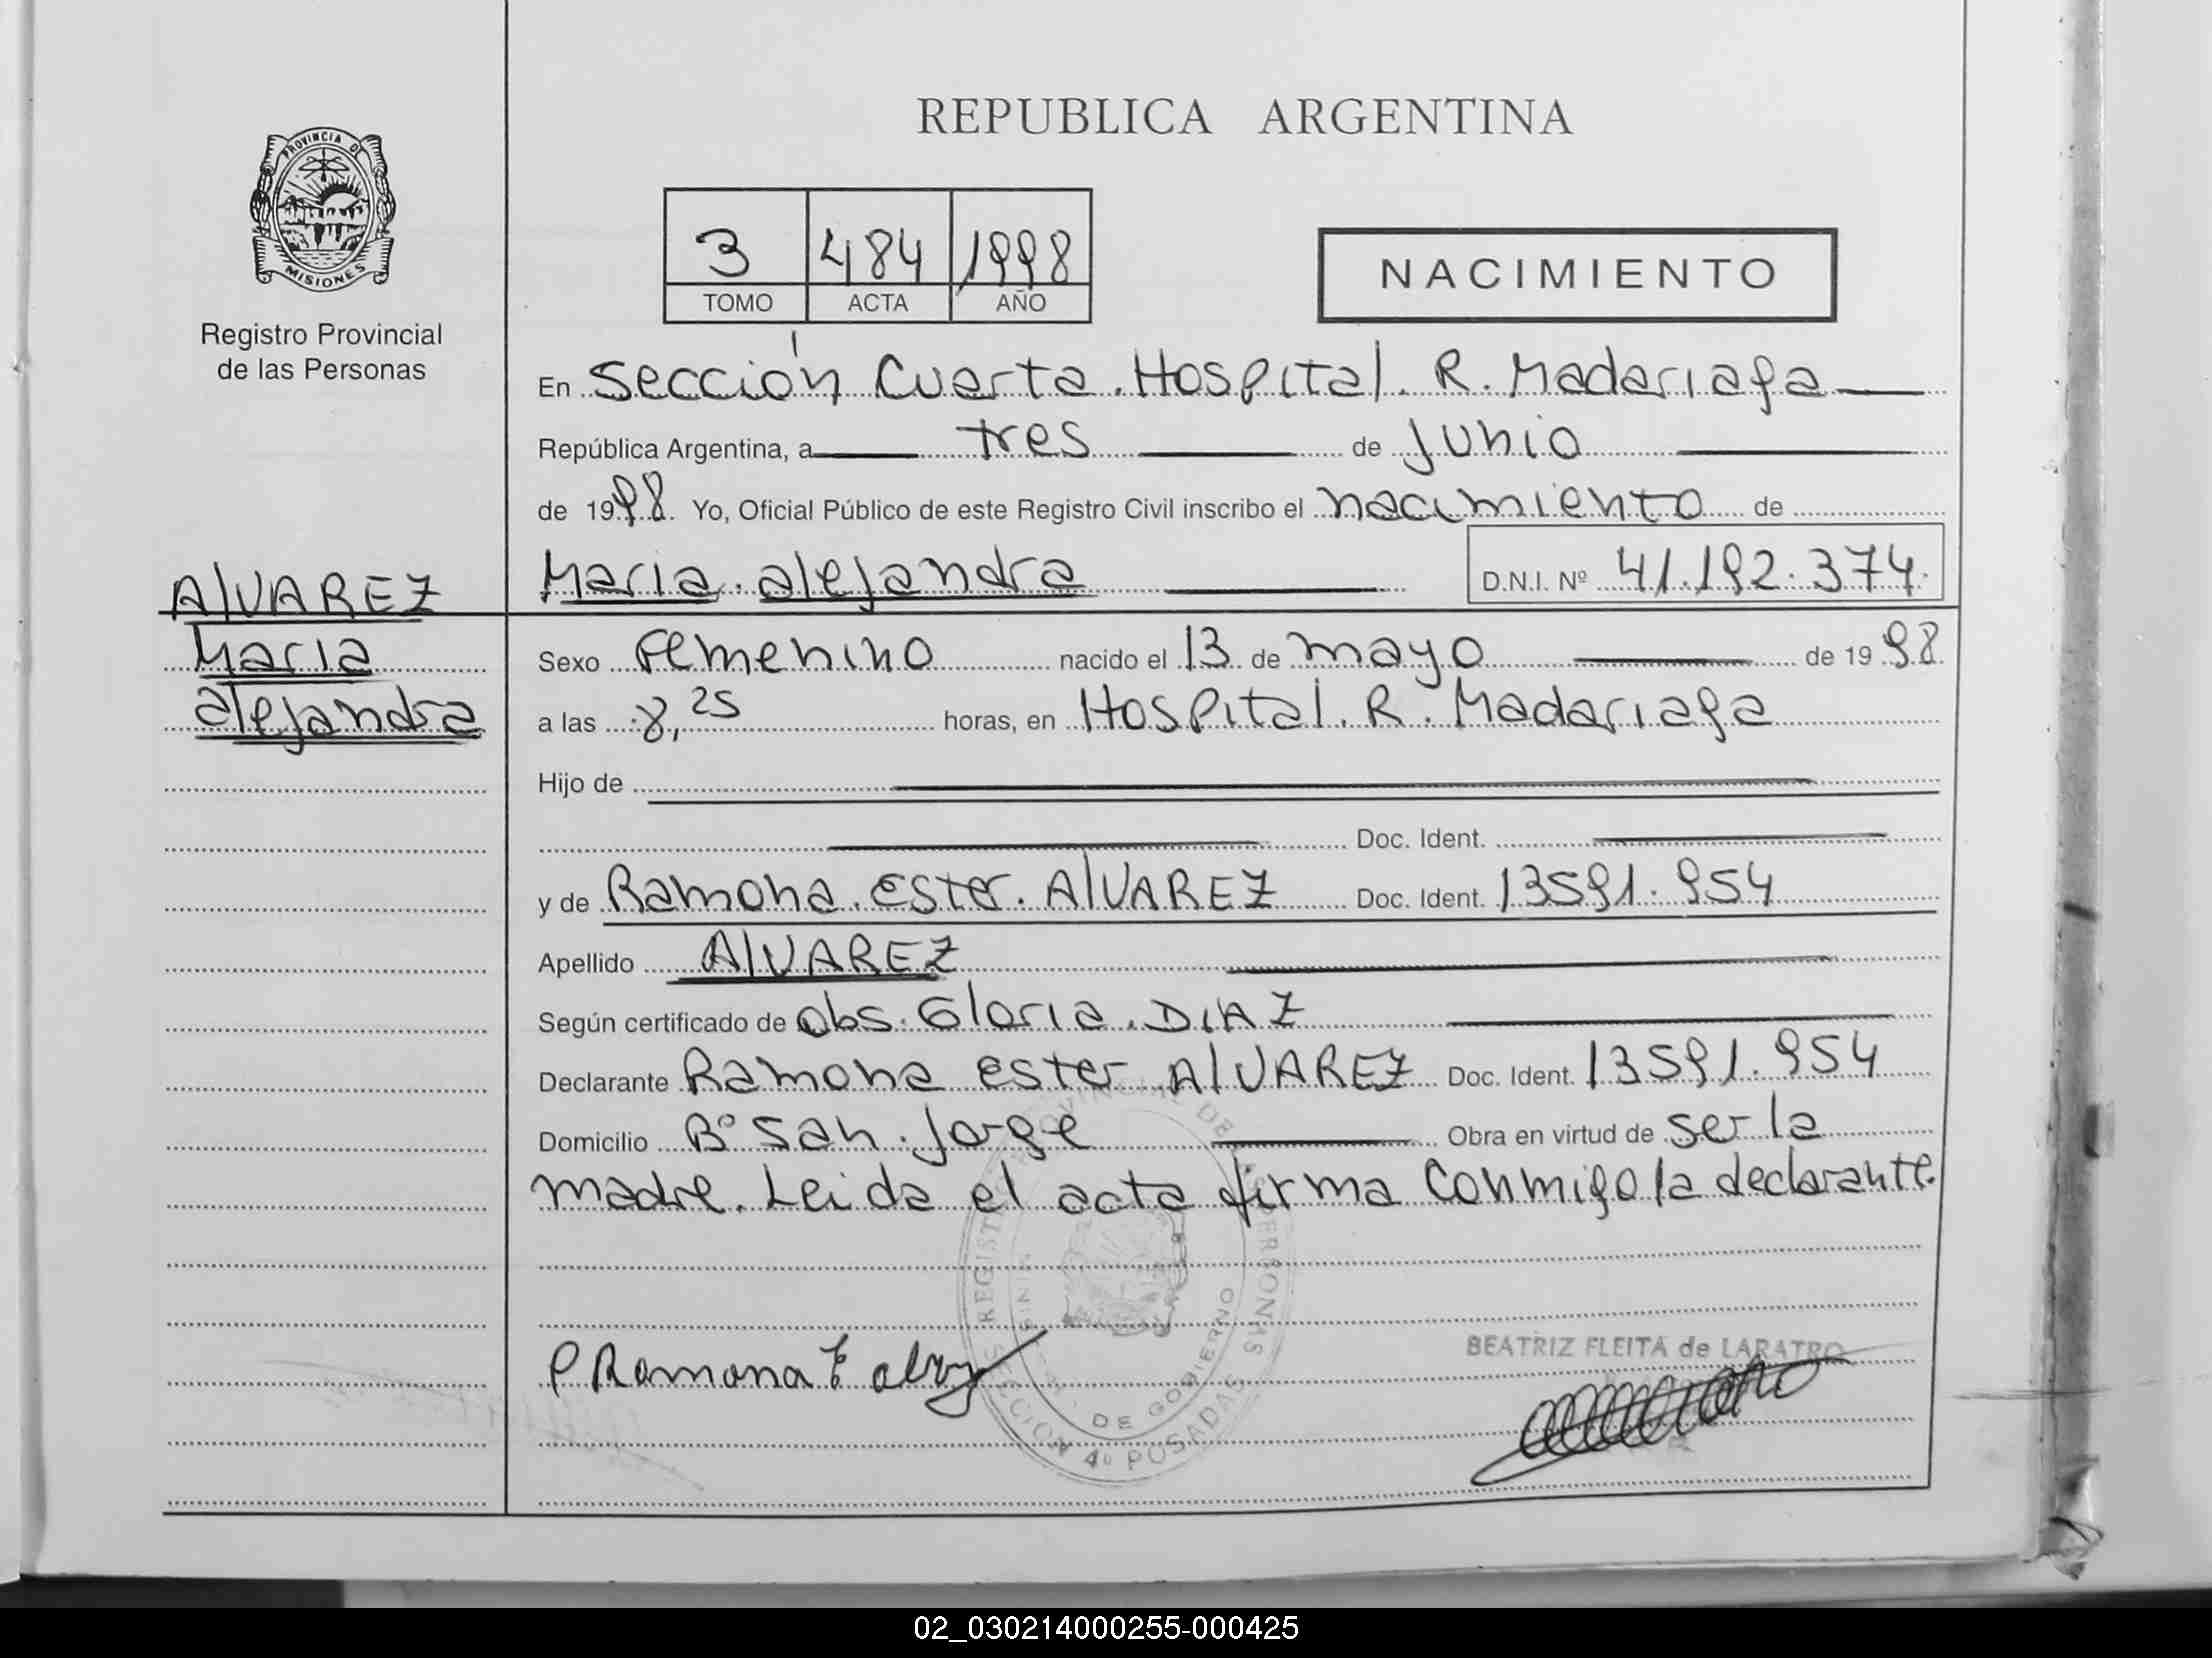 REPUBLICA ARGENTINA
PROVINCIA DE
MISIONES
Registro Provincial
de las Personas
3 484 1998
TOMO ACTA AÑO
NACIMIENTO
En Sección Cuarta. Hospital. R. Madariaga
República Argentina, a tres de Junio
de 1998. Yo, Oficial Público de este Registro Civil inscribo el nacimiento de
Maria. alejandra D.N.I. Nº 41.192.374.
AlVAREZ
Maria
alejandra
Sexo Femenino nacido el 13 de mayo de 1998.
a las 8,25 horas, en Hospital. R. Madariaga
Hijo de
Doc. Ident.
y de Ramona. Ester. AlVAREZ Doc. Ident. 13591.954
Apellido AlVAREZ
Según certificado de Obs. Gloria. DIAZ
Declarante Ramona Ester AlVAREZ Doc. Ident. 13591.954
Domicilio Bº San. Jorge Obra en virtud de ser la
madre. Leida el acta firma Conmigo la declarante.
DE GOBIERNO
SECCION 4º POSADAS
Ramona E
BEATRIZ FLEITA de LARATRO
02_030214000255-000425